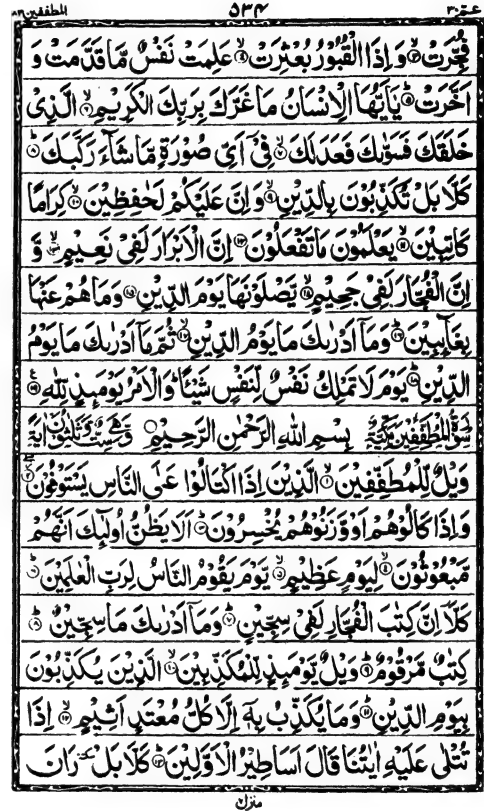 المطففين ٨٣ ٥٣٤ عم ٣٠
فُجِّرَتْ ۙ﴿٣﴾ وَاِذَا الْقُبُوْرُ بُعْثِرَتْ ۙ﴿٤﴾ عَلِمَتْ نَفْسٌ مَّا قَدَّمَتْ وَ
اَخَّرَتْ ؕ﴿٥﴾ يٰۤاَيُّهَا الْاِنْسَانُ مَا غَرَّكَ بِرَبِّكَ الْكَرِيْمِ ۙ﴿٦﴾ الَّذِىْ
خَلَقَكَ فَسَوّٰىكَ فَعَدَلَكَ ۙ﴿٧﴾ فِىْۤ اَىِّ صُوْرَةٍ مَّا شَآءَ رَكَّبَكَ ؕ﴿٨﴾
كَلَّا بَلْ تُكَذِّبُوْنَ بِالدِّيْنِ ۙ﴿٩﴾ وَاِنَّ عَلَيْكُمْ لَحٰفِظِيْنَ ۙ﴿١٠﴾ كِرَامًا
كَاتِبِيْنَ ۙ﴿١١﴾ يَعْلَمُوْنَ مَا تَفْعَلُوْنَ ﴿١٢﴾ اِنَّ الْاَبْرَارَ لَفِىْ نَعِيْمٍ ۙ﴿١٣﴾ وَّ
اِنَّ الْفُجَّارَ لَفِىْ جَحِيْمٍ ۚۖ﴿١٤﴾ يَّصْلَوْنَهَا يَوْمَ الدِّيْنِ ﴿١٥﴾ وَمَا هُمْ عَنْهَا
بِغَآئِبِيْنَ ؕ﴿١٦﴾ وَمَاۤ اَدْرٰىكَ مَا يَوْمُ الدِّيْنِ ۙ﴿١٧﴾ ثُمَّ مَاۤ اَدْرٰىكَ مَا يَوْمُ
الدِّيْنِ ؕ﴿١٨﴾ يَوْمَ لَا تَمْلِكُ نَفْسٌ لِّنَفْسٍ شَيْئًا ؕ وَالْاَمْرُ يَوْمَئِذٍ لِّلّٰهِ ﴿١٩﴾
سُوْرَةُ الْمُطَفِّفِيْنَ مَكِّيَّةٌ بِسْمِ اللّٰهِ الرَّحْمٰنِ الرَّحِيْمِ ○ وَّهِىَ سِتٌّ وَّثَلٰثُوْنَ اٰيَةً
وَيْلٌ لِّلْمُطَفِّفِيْنَ ۙ﴿١﴾ الَّذِيْنَ اِذَا اكْتَالُوْا عَلَى النَّاسِ يَسْتَوْفُوْنَ ﴿٢﴾
وَاِذَا كَالُوْهُمْ اَوْ وَّزَنُوْهُمْ يُخْسِرُوْنَ ؕ﴿٣﴾ اَلَا يَظُنُّ اُولٰٓئِكَ اَنَّهُمْ
مَّبْعُوْثُوْنَ ۙ﴿٤﴾ لِيَوْمٍ عَظِيْمٍ ۙ﴿٥﴾ يَّوْمَ يَقُوْمُ النَّاسُ لِرَبِّ الْعٰلَمِيْنَ ؕ﴿٦﴾
كَلَّاۤ اِنَّ كِتٰبَ الْفُجَّارِ لَفِىْ سِجِّيْنٍ ؕ﴿٧﴾ وَمَاۤ اَدْرٰىكَ مَا سِجِّيْنٌ ؕ﴿٨﴾
كِتٰبٌ مَّرْقُوْمٌ ؕ﴿٩﴾ وَيْلٌ يَّوْمَئِذٍ لِّلْمُكَذِّبِيْنَ ۙ﴿١٠﴾ الَّذِيْنَ يُكَذِّبُوْنَ
بِيَوْمِ الدِّيْنِ ؕ﴿١١﴾ وَمَا يُكَذِّبُ بِهٖۤ اِلَّا كُلُّ مُعْتَدٍ اَثِيْمٍ ۙ﴿١٢﴾ اِذَا
تُتْلٰى عَلَيْهِ اٰيٰتُنَا قَالَ اَسَاطِيْرُ الْاَوَّلِيْنَ ؕ﴿١٣﴾ كَلَّا بَلْ ٚ رَانَ
منزل ٧